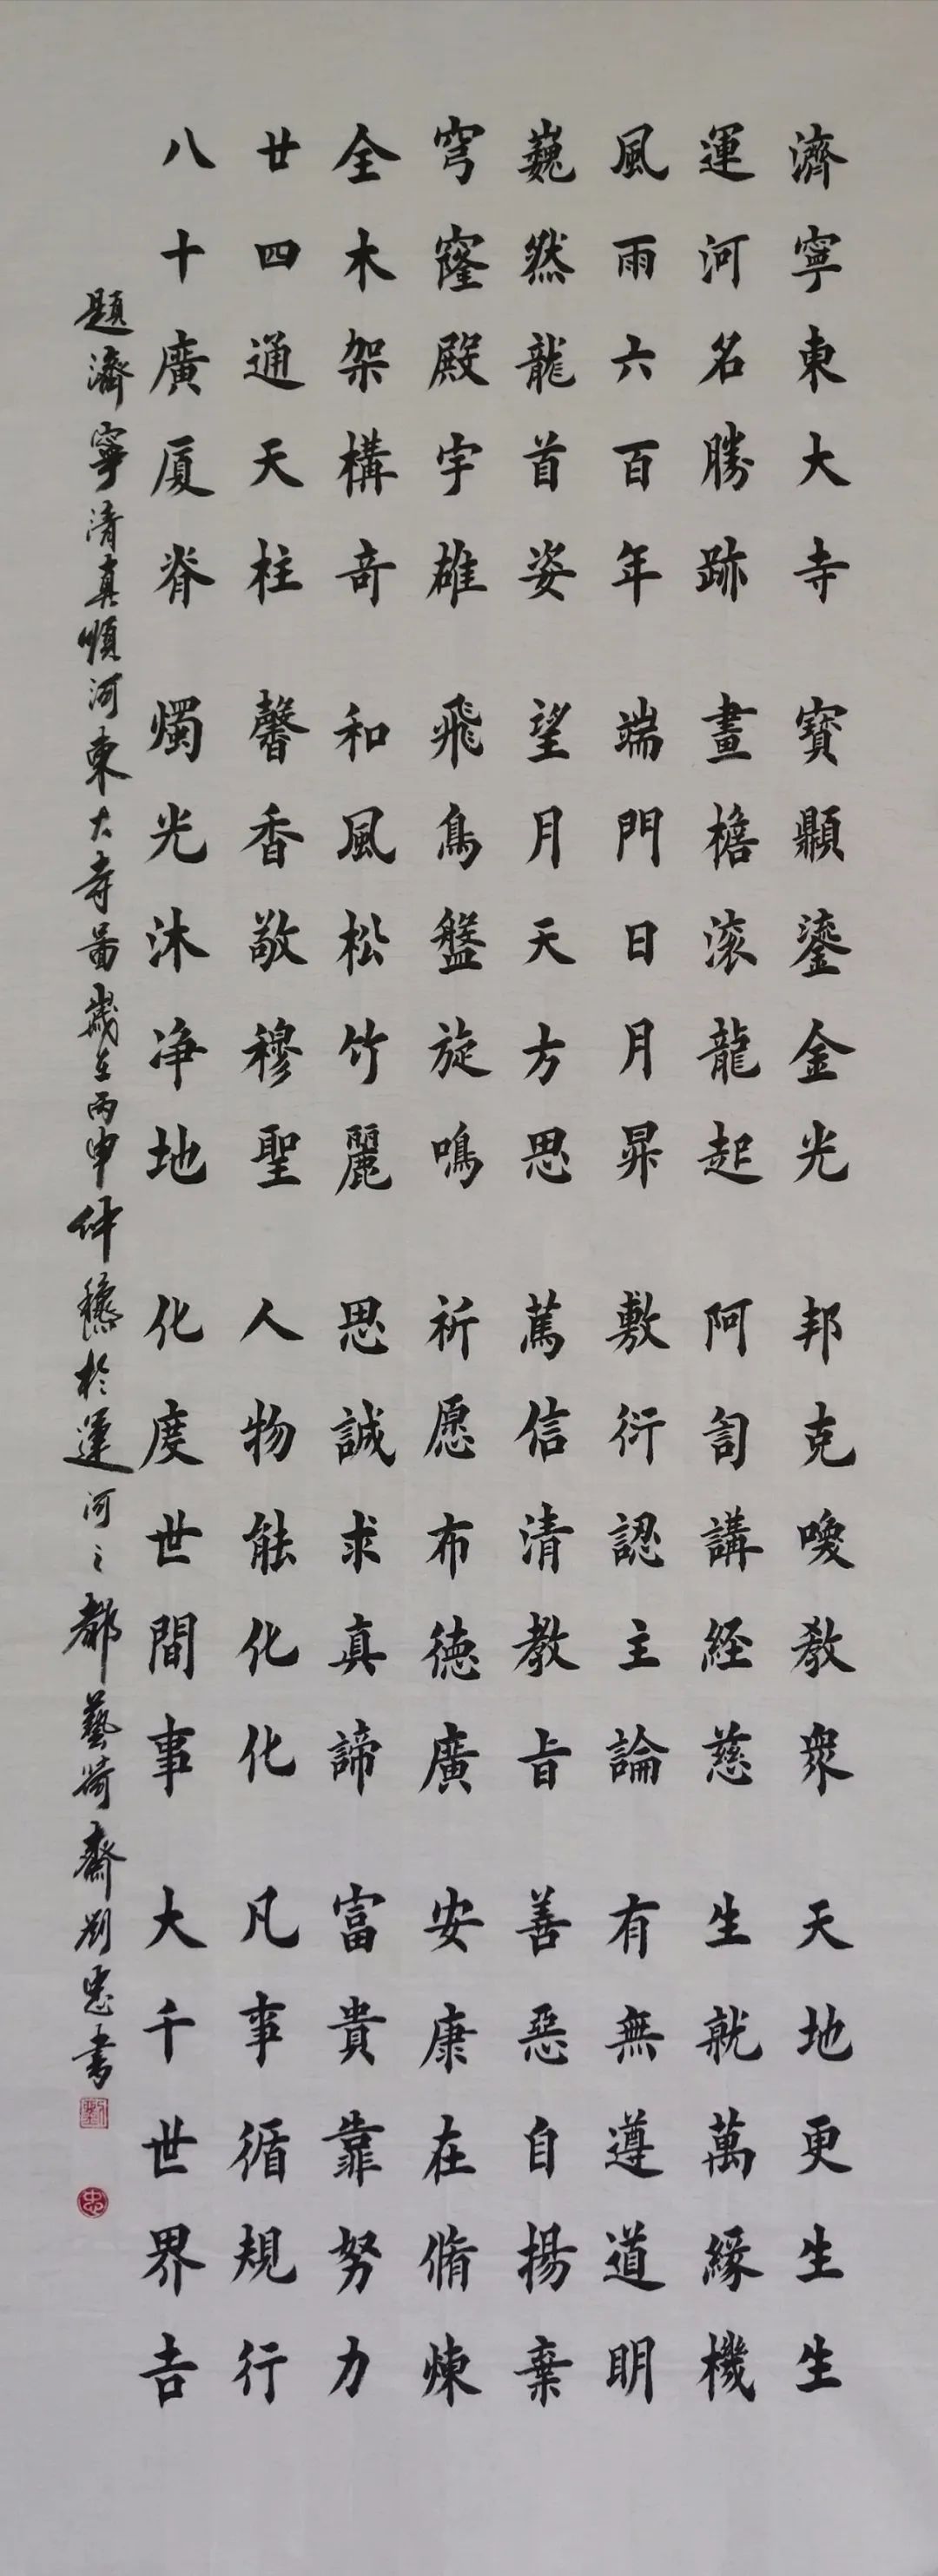 濟寧東大寺 寶𩕢鎏金光 邦克喚教衆 天地更生生
運河名勝跡 畫檐滚龍起 阿訇講経慈 生就萬緣機
風雨六百年 端門日月昇 敷衍認主論 有無遵道明
巍然龍首姿 望月天方思 篤信清教旨 善惡自揚棄
穹窿殿宇雄 飛鳥盤旋鳴 祈愿布德廣 安康在脩煉
全木架構奇 和風松竹麗 思誠求真諦 富貴靠努力
廿四通天柱 馨香敬穆聖 人物能化化 凡事循規行
八十廣厦脊 燭光沐净地 化度世間事 大千世界吉
題濟寧清真順河東大寺啚歲在丙申仲穐於運河之都藝崎齋劉忠書
劉
忠